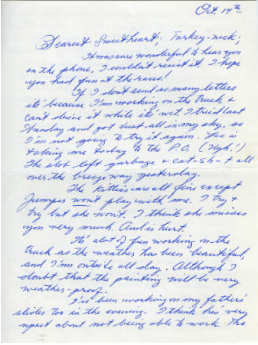 Oct. 14th
Dearest Sweetheart, Turkey-neck;
It was sure wonderful to hear you
on the phone, I couldn't resist it. I hope
you had fun at the races!
If I don't send as many letters
its because I'm working on the truck &
can't drive it while its wet. I tried last
Sunday and got dust all in my, so
I'm not going to try it again. is
taking me today to the P.O. (Ugh!)
The left garbage + cat-sh-t all
over the breezeway yesterday.
The Kitties are all fine except
Jumper won't play with me. I try &
try but she won't. I think she misses
you very much. And is hurt.
It's alot of fun working on the
truck as the weather has been beautiful,
and I'm outside all day. Although I
doubt that the painting will be very
weather-proof.
I've been working on my fathers
slides too in the evening. I think he's very
upset about not being able to work. The